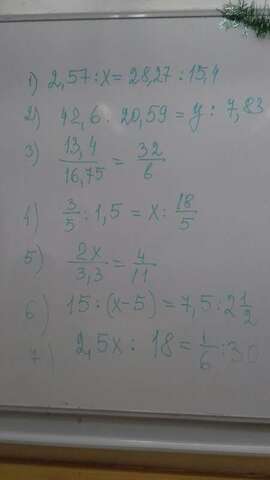 1) 2,57 : x = 28,27 : 15,4
2) 42,6 : 20,59 = y : 7,83
3) 13,4/16,75 = 32/6
4) 3/5 : 1,5 = x : 18/5
5) 2x/3,3 = 4/11
6) 15 : (x-5) = 7,5 : 2 1/2
7) 2,5x : 18 = 1/6 : 30